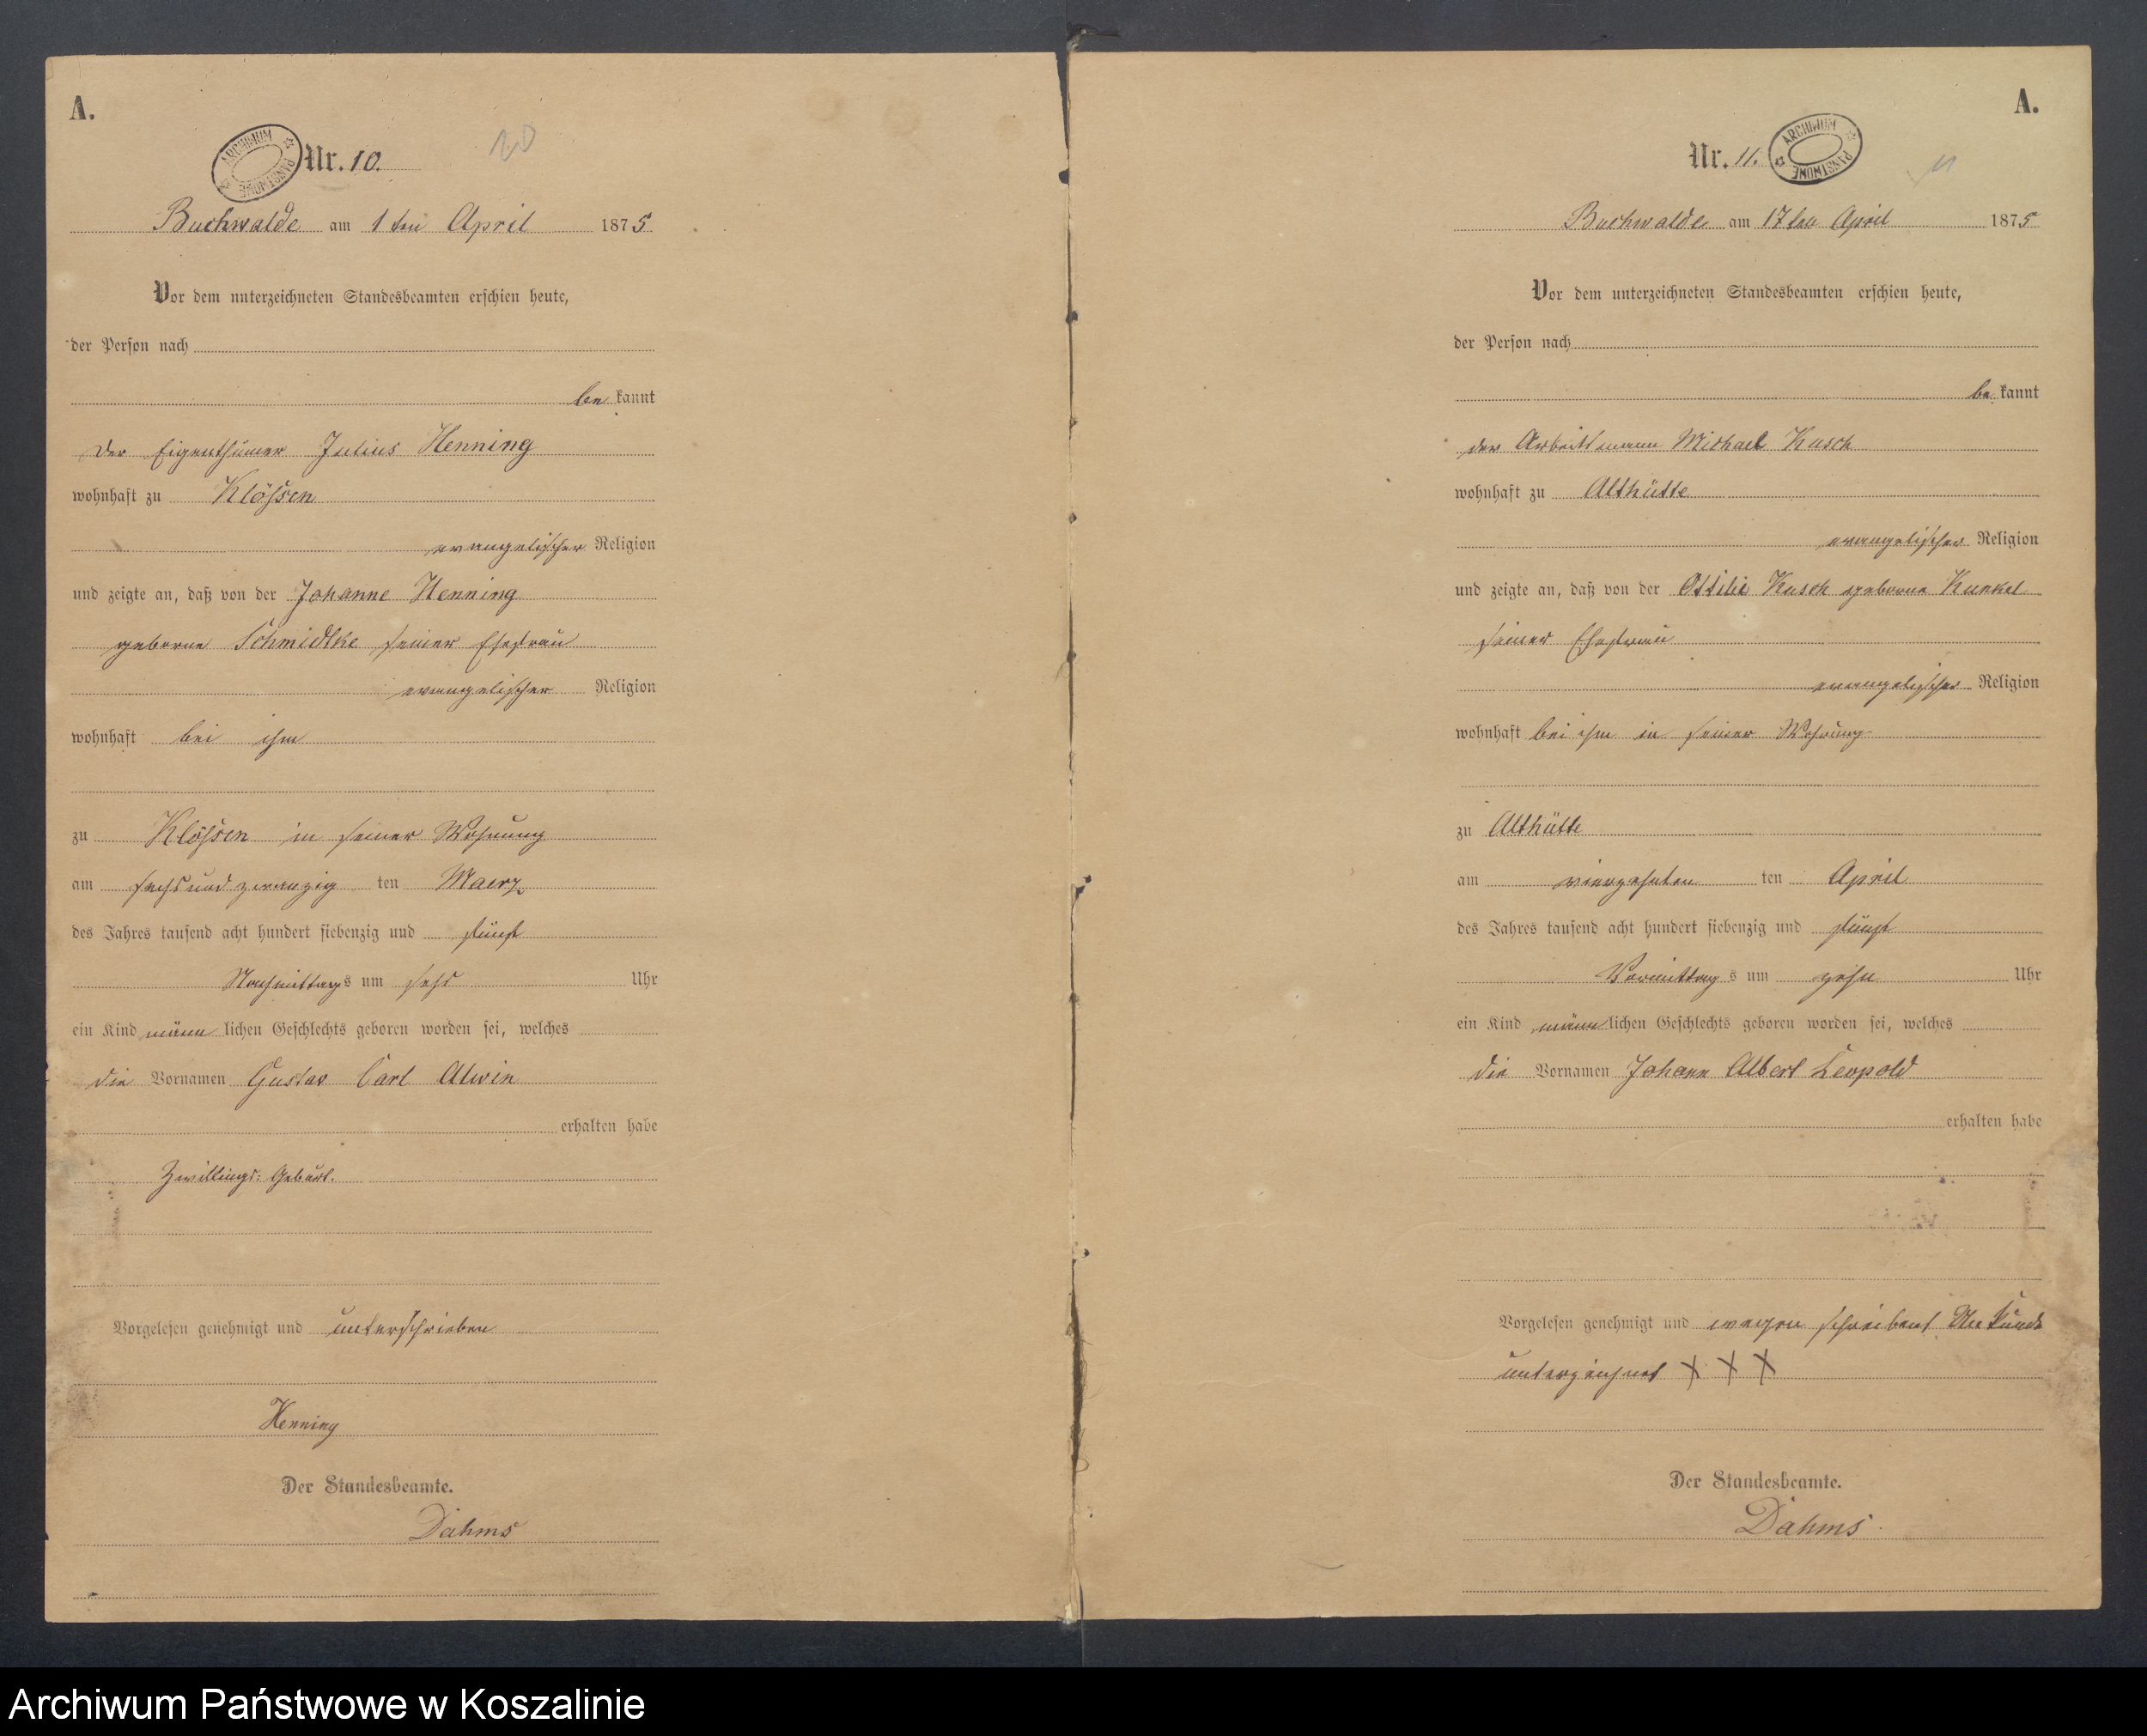 A.
ARCHIWUM PAŃSTWOWE
Nr. 10.
Buchwalde am 1ten April 1875
Vor dem unterzeichneten Standesbeamten erschien heute,
der Person nach
be kannt
der Eigenthümer Julius Henning
wohnhaft zu Klössen
evangelischer Religion
und zeigte an, daß von der Johanne Henning
geborene Schmidtke seiner Ehefrau
evangelischer Religion
wohnhaft bei ihm
zu Klössen in seiner Wohnung
am sechsundzwanzig ten Maerz
des Jahres tausend acht hundert siebenzig und fünf
Nachmittags um sechs Uhr
ein Kind männlichen Geschlechts geboren worden sei, welches
die Vornamen Gustav Carl Alwin
erhalten habe
Zwillings: Geburt.
Vorgelesen genehmigt und unterschrieben
Henning
Der Standesbeamte.
Dahms
A.
Nr. 11.
ARCHIWUM PAŃSTWOWE
11
Buchwalde am 17ten April 1875
Vor dem unterzeichneten Standesbeamten erschien heute,
der Person nach
be kannt
der Arbeitsmann Michael Kusch
wohnhaft zu Althütte
evangelischer Religion
und zeigte an, daß von der Ottilie Kusch geborene Kunkel
seiner Ehefrau
evangelischer Religion
wohnhaft bei ihm in seiner Wohnung
zu Althütte
am vierzehnten ten April
des Jahres tausend acht hundert siebenzig und fünf
Vormittags um zehn Uhr
ein Kind männlichen Geschlechts geboren worden sei, welches
die Vornamen Johann Albert Leopold
erhalten habe
Vorgelesen genehmigt und wegen schreibens Unkunde
unterzeichnet XXX
Der Standesbeamte.
Dahms
Archiwum Państwowe w Koszalinie